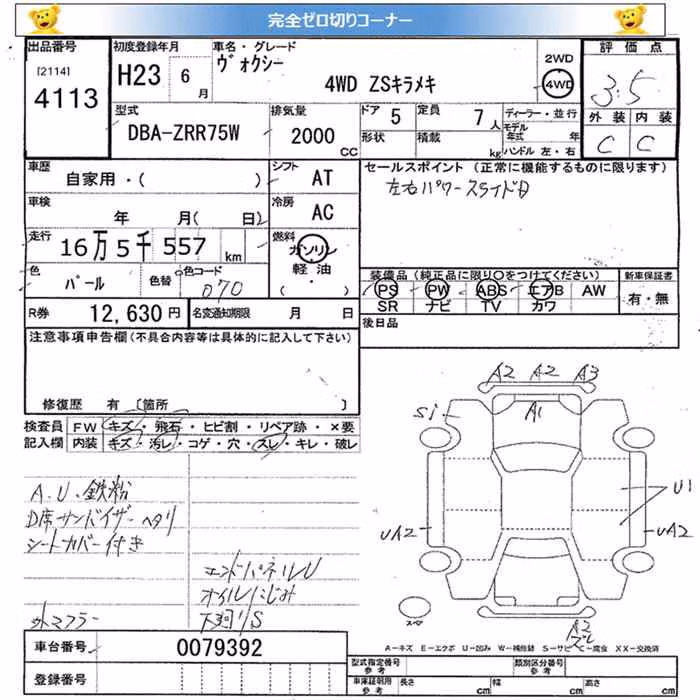 完全ゼロ切りコーナー
出品番号
[2114]
4113
初度登録年月
H23 6月
車名・グレード
ヴォクシー
4WD ZSキラメキ
2WD
4WD
評価点
3.5
外装 内装
C C
型式
DBA-ZRR75W
排気量
2000 CC
ドア 5
形状
定員 7人
積載 kg
ディーラー・並行
モデル年式 年
ハンドル 左・右
車歴
自家用・( )
シフト AT
車検
年 月( 日)
冷房 AC
走行
16万5千557 km
燃料
ガソリン
軽油
( ・ )
色 パール
色替
色コード 070
R券 12,630円
名変通知期限 月 日
セールスポイント (正常に機能するものに限ります)
左右パワースライドD
装備品 (純正品に限り○をつけてください)
PS PW ABS エアB AW
SR ナビ TV カワ
新車保証書
有・無
後日品
注意事項申告欄(不具合内容等は具体的に記入して下さい)
修復歴 有 〔箇所 〕
検査員記入欄
FW キズ・飛石・ヒビ割・リペア跡・×要
内装 キズ・汚レ・コゲ・穴・スレ・キレ・破レ
A.U.鉄粉
D席サンバイザーヘタリ
シートカバー付き
エンドパネルU
オイルにじみ
外マフラー
下廻りS
A2 A2 A3
S1
A1
U1
UA2
UA2
スペア
A2
ズレ
A-キズ E-エクボ U-凹み W-補修跡 S-サビ C-腐食 XX-交換済
車台番号 0079392
登録番号
型式指定番号 参考
類別区分番号 参考
車庫証明用 参考
長さ cm
幅 cm
高さ cm